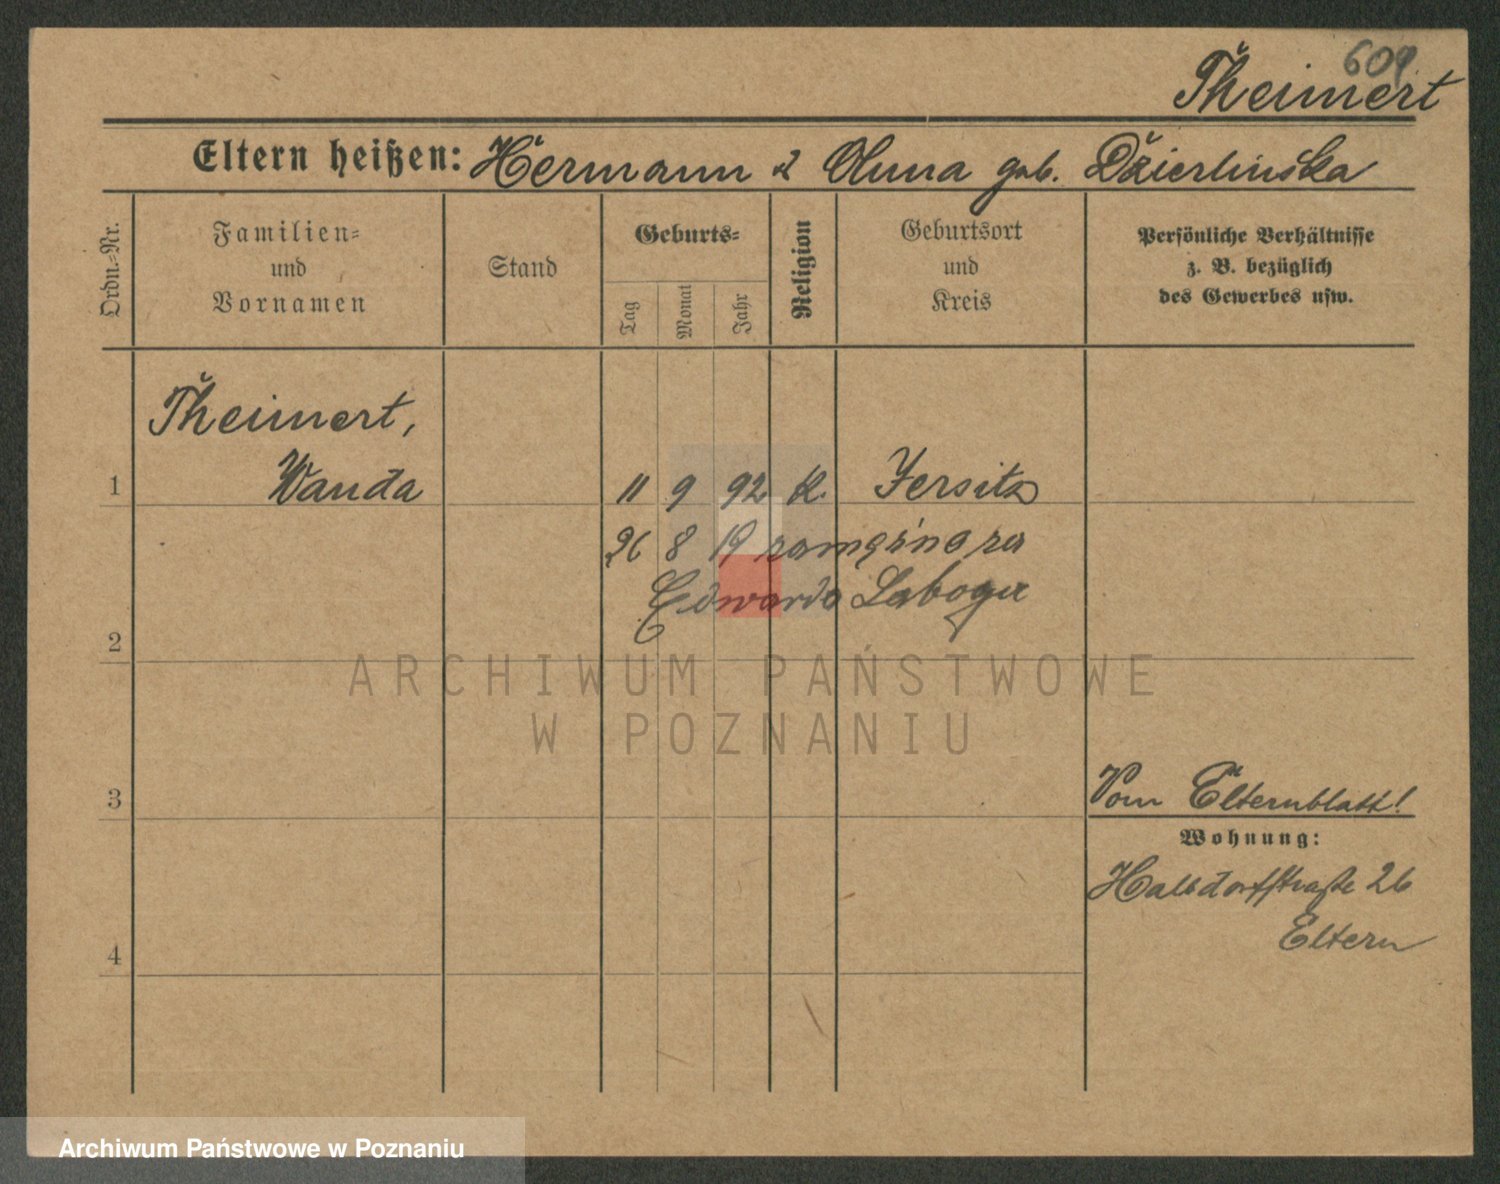 609
Theimert
Eltern heißen: Hermann & Anna geb. Dzierlinska
Ordn.-Nr.
Familien-
und
Vornamen
Stand
Geburts-
Tag
Monat
Jahr
Religion
Geburtsort
und
Kreis
Persönliche Verhältnisse
z. B. bezüglich
des Gewerbes usw.
Theimert,
1 Wanda 11 9 92 K. Jersitz
26 8 19 zamężna za
Edwarda Labogu
2
ARCHIWUM PAŃSTWOWE
W POZNANIU
3
Vom Elternblatt!
Wohnung:
Hallsdorfstraße 26
Eltern
4
Archiwum Państwowe w Poznaniu